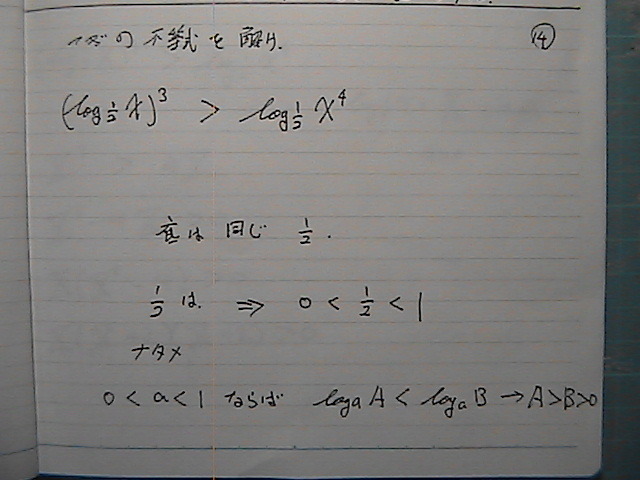 ⑭
の不等式を解け.
(log½ x)³ > log½ x⁴
底は同じ ½.
½は. ⇒ 0 < ½ < 1
ナタメ
0 < a < 1 ならば logₐ A < logₐ B → A>B>0